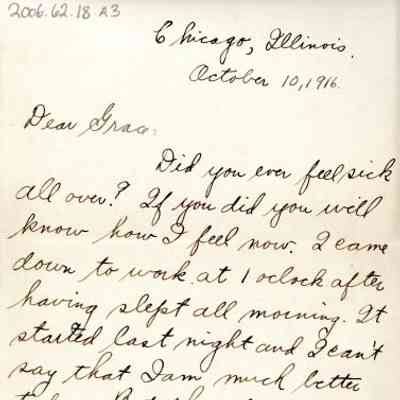 2006.62.18 A3
Chicago, Illinois.
October 10, 1916.
Dear Grace:
Did you ever feel sick
all over? If you did you will
know how I feel now. I came
down to work at 1 oclock after
having slept all morning. It
started last night and I can't
say that I am much better